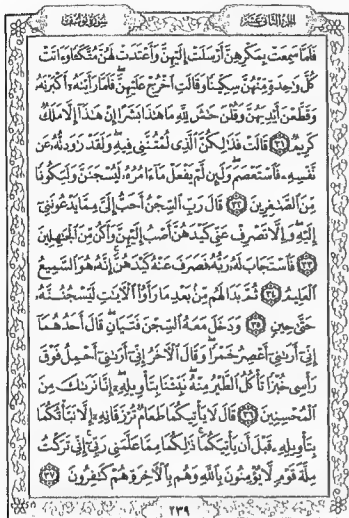 الجزء الثاني عشر
سورة يوسف
فَلَمَّا سَمِعَتْ بِمَكْرِهِنَّ أَرْسَلَتْ إِلَيْهِنَّ وَأَعْتَدَتْ لَهُنَّ مُتَّكَـًٔا وَءَاتَتْ
كُلَّ وَٰحِدَةٍ مِّنْهُنَّ سِكِّينًا وَقَالَتِ ٱخْرُجْ عَلَيْهِنَّ فَلَمَّا رَأَيْنَهُۥٓ أَكْبَرْنَهُۥ
وَقَطَّعْنَ أَيْدِيَهُنَّ وَقُلْنَ حَٰشَ لِلَّهِ مَا هَٰذَا بَشَرًا إِنْ هَٰذَآ إِلَّا مَلَكٌ
كَرِيمٌ ٣١ قَالَتْ فَذَٰلِكُنَّ ٱلَّذِى لُمْتُنَّنِى فِيهِ وَلَقَدْ رَٰوَدتُّهُۥ عَن
نَّفْسِهِۦ فَٱسْتَعْصَمَ وَلَئِن لَّمْ يَفْعَلْ مَآ ءَامُرُهُۥ لَيُسْجَنَنَّ وَلَيَكُونًا
مِّنَ ٱلصَّٰغِرِينَ ٣٢ قَالَ رَبِّ ٱلسِّجْنُ أَحَبُّ إِلَىَّ مِمَّا يَدْعُونَنِىٓ
إِلَيْهِ وَإِلَّا تَصْرِفْ عَنِّى كَيْدَهُنَّ أَصْبُ إِلَيْهِنَّ وَأَكُن مِّنَ ٱلْجَٰهِلِينَ
٣٣ فَٱسْتَجَابَ لَهُۥ رَبُّهُۥ فَصَرَفَ عَنْهُ كَيْدَهُنَّ إِنَّهُۥ هُوَ ٱلسَّمِيعُ
ٱلْعَلِيمُ ٣٤ ثُمَّ بَدَا لَهُم مِّنۢ بَعْدِ مَا رَأَوُا۟ ٱلْءَايَٰتِ لَيَسْجُنُنَّهُۥ
حَتَّىٰ حِينٍ ٣٥ وَدَخَلَ مَعَهُ ٱلسِّجْنَ فَتَيَانِ قَالَ أَحَدُهُمَآ
إِنِّىٓ أَرَىٰنِىٓ أَعْصِرُ خَمْرًا وَقَالَ ٱلْءَاخَرُ إِنِّىٓ أَرَىٰنِىٓ أَحْمِلُ فَوْقَ
رَأْسِى خُبْزًا تَأْكُلُ ٱلطَّيْرُ مِنْهُ نَبِّئْنَا بِتَأْوِيلِهِۦٓ إِنَّا نَرَىٰكَ مِنَ
ٱلْمُحْسِنِينَ ٣٦ قَالَ لَا يَأْتِيكُمَا طَعَامٌ تُرْزَقَانِهِۦٓ إِلَّا نَبَّأْتُكُمَا
بِتَأْوِيلِهِۦ قَبْلَ أَن يَأْتِيَكُمَا ذَٰلِكُمَا مِمَّا عَلَّمَنِى رَبِّىٓ إِنِّى تَرَكْتُ
مِلَّةَ قَوْمٍ لَّا يُؤْمِنُونَ بِٱللَّهِ وَهُم بِٱلْءَاخِرَةِ هُمْ كَٰفِرُونَ ٣٧
٢٣٩